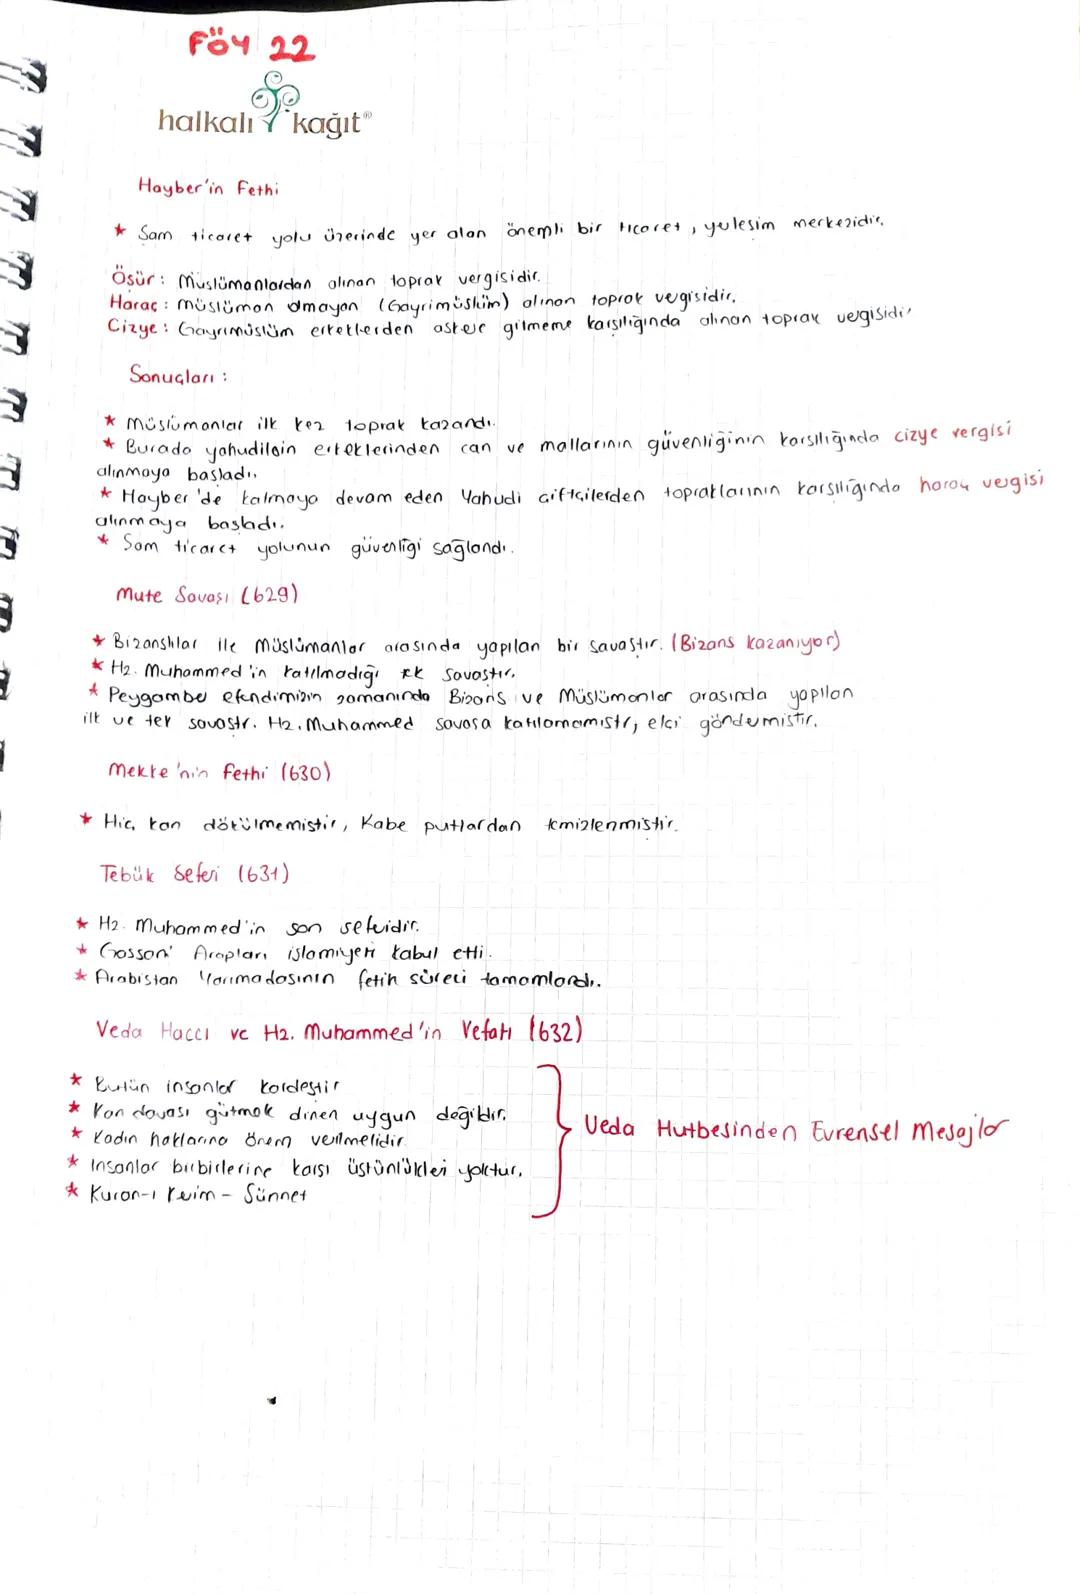 FÖY 22
halkalı kağıt®
Hayber'in Fethi
* Şam ticaret yolu üzerinde yer alan önemli bir ticaret, yerleşim merkezidir.
Öşür: Müslümanlardan alınan toprak vergisidir.
Haraç: Müslüman olmayan (Gayrimüslüm) alınan toprak vergisidir.
Cizye: Gayrimüslüm erkeklerden askere gitmeme karşılığında alınan toprak vergisidir
Sonuçları:
* Müslümanlar ilk kez toprak kazandı.
* Burada yahudilein erkeklerinden can ve mallarının güvenliğinin karşılığında cizye vergisi
alınmaya başladı.
* Hayber'de kalmaya devam eden Yahudi çiftçilerden topraklarının karşılığında haraç vergisi
alınmaya başladı.
* Şam ticaret yolunun güvenliği sağlandı.
Mute Savaşı (629)
* Bizanslılar ile Müslümanlar arasında yapılan bir savaştır. (Bizans kazanıyor)
* Hz. Muhammed'in katılmadığı tek savaştır.
* Peygamber efendimizin zamanında Bizans ve Müslümanlar arasında yapılan
ilk ve tek savaştır. Hz. Muhammed savaşa katılamamıştr, elçi göndermiştir.
Mekke'nin Fethi (630)
* Hiç kan dökülmemiştir, Kabe putlardan temizlenmiştir.
Tebük Seferi (631)
* Hz. Muhammed'in son seferidir.
* Gassani Arapları islamiyeti kabul etti.
* Arabistan Yarımadasının fetih süreci tamamlandı.
Veda Haccı ve Hz. Muhammed'in Vefatı (632)
* Bütün insanlar kardeştir
* Kan davası gütmek dinen uygun değildir.
* Kadın haklarına önem verilmelidir.
* İnsanlar birbirlerine karşı üstünlükleri yoktur.
* Kuran-ı Kerim - Sünnet
Veda Hutbesinden Evrensel Mesajlar